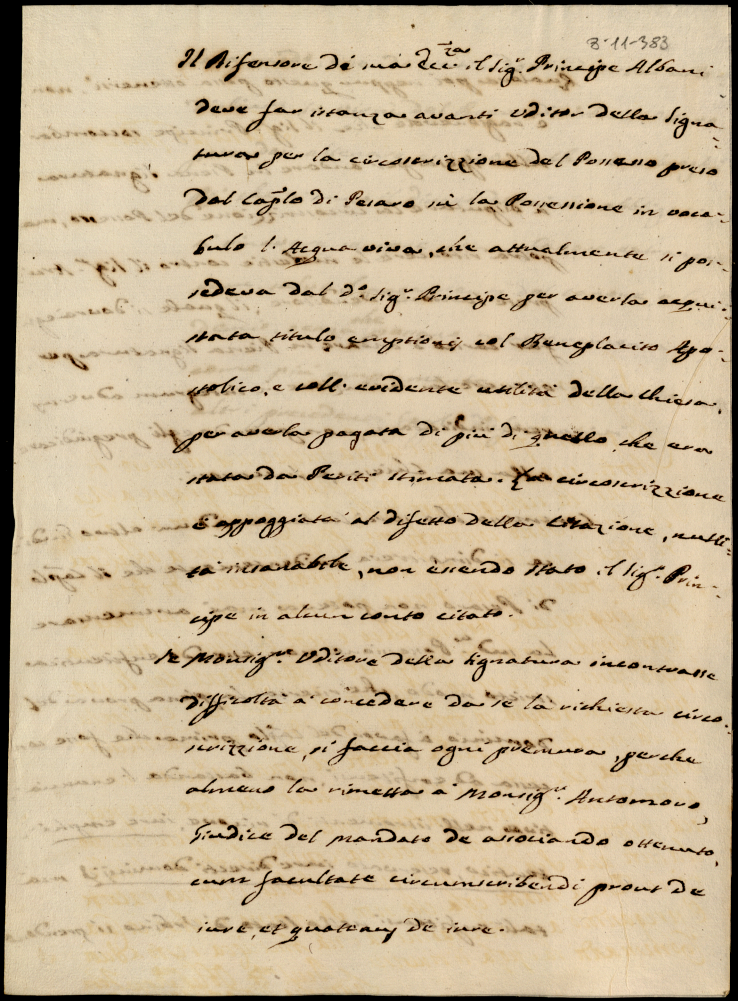 3-11-383
Il Difensore dè sua Ecc.za il Sig.r Principe Albani
deve far istanza avanti Uditor della Signa-
tura per la circoscrizzione del Possesso preso
dal Cap.lo di Pesaro sù la Possessione in voca-
bulo l'Acqua viva, che attualmente si pos-
sedeva dal d.o Sig.r Principe per averla acqui-
stata titulo emptionis col Beneplacito Apo-
stolico, e coll'evidente utilità della Chiesa,
per averla pagata di più di quello, che era
stata da Periti stimata. La circoscrizzione
è appoggiata al difetto della Citazione, nulli-
tà insanabile, non essendo stato il Sig.r Prin-
cipe in alcun conto citato.
Se Monsig.re Uditore della Signatura incontrasse
difficoltà à concedere da se la richiesta circo-
scrizzione, si faccia ogni premura, perche
almeno la rimetta à Monsig.re
Giudice del Mandato de associando ottenuto,
cum facultate circumscribendi prout de
iure, et quatenus de iure.